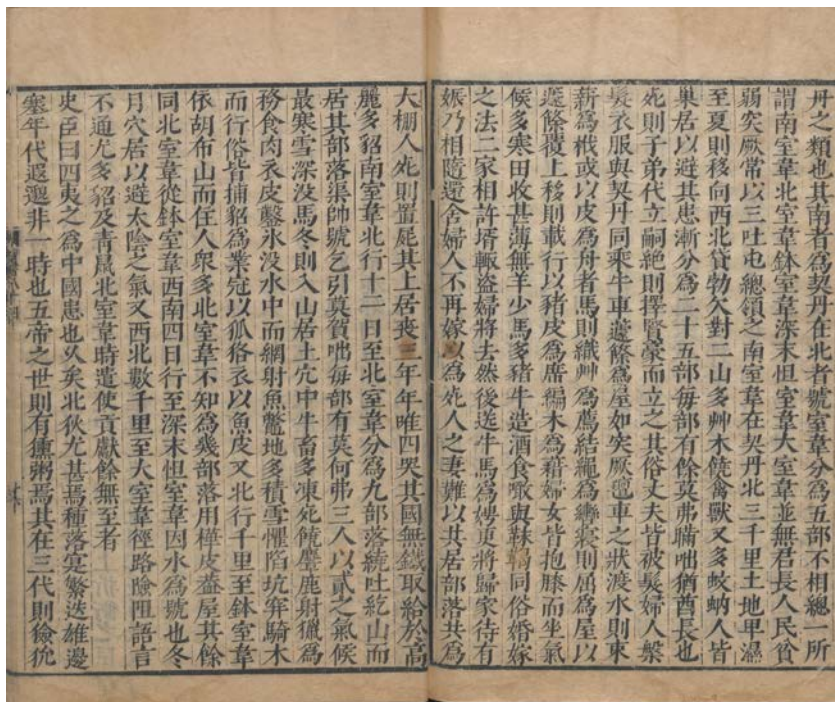 丹之類也其南者為契丹在北者號室韋分為五部不相總一所
謂南室韋北室韋鉢室韋深末怛室韋大室韋並無君長人民貧
弱突厥常以三吐屯總領之南室韋在契丹北三千里土地卑濕
至夏則移向西北貸勃欠對二山多艸木饒禽獸又多蚊蚋人皆
巢居以避其患漸分為二十五部每部有餘莫弗瞞咄猶酋長也
死則子弟代立嗣絶則擇賢豪而立之其俗丈夫皆被髮婦人槃
髮衣服與契丹同乘牛車籧篨為屋如突厥氊車之狀渡水則束
薪為栰或以皮為舟者馬則織艸為韉結繩為轡寢則屈為屋以
籧篨覆上移則載行以豬皮為席編木為藉婦女皆抱膝而坐氣
候多寒田收甚薄無羊少馬多豬牛造酒食噉與靺鞨同俗婚嫁
之法二家相許壻輒盜婦將去然後送牛馬為娉更將歸家待有
娠乃相隨還舍婦人不再嫁以為死人之妻難以共居部落共為
大棚人死則置屍其上居喪三年年唯四哭其國無鐵取給於高
麗多貂南室韋北行十一日至北室韋分為九部落繞吐紇山而
居其部落渠帥號乞引莫賀咄每部有莫何弗三人以貳之氣候
最寒雪深没馬冬則入山居土穴中牛畜多凍死饒麞鹿射獵為
務食肉衣皮鑿氷没水中而網射魚鼈地多積雪懼陷坑穽騎木
而行俗皆捕貂為業冠以狐狢衣以魚皮又北行千里至鉢室韋
依胡布山而住人衆多北室韋不知為幾部落用樺皮葢屋其餘
同北室韋從鉢室韋西南四日行至深末怛室韋因水為號也冬
月穴居以避太陰之氣又西北數千里至大室韋徑路險阻語言
不通尤多貂及青鼠北室韋時遣使貢獻餘無至者
史臣曰四夷之為中國患也久矣北狄尤甚焉種落寔繁迭雄邊
塞年代遐邈非一時也五帝之世則有獯粥焉其在三代則獫狁